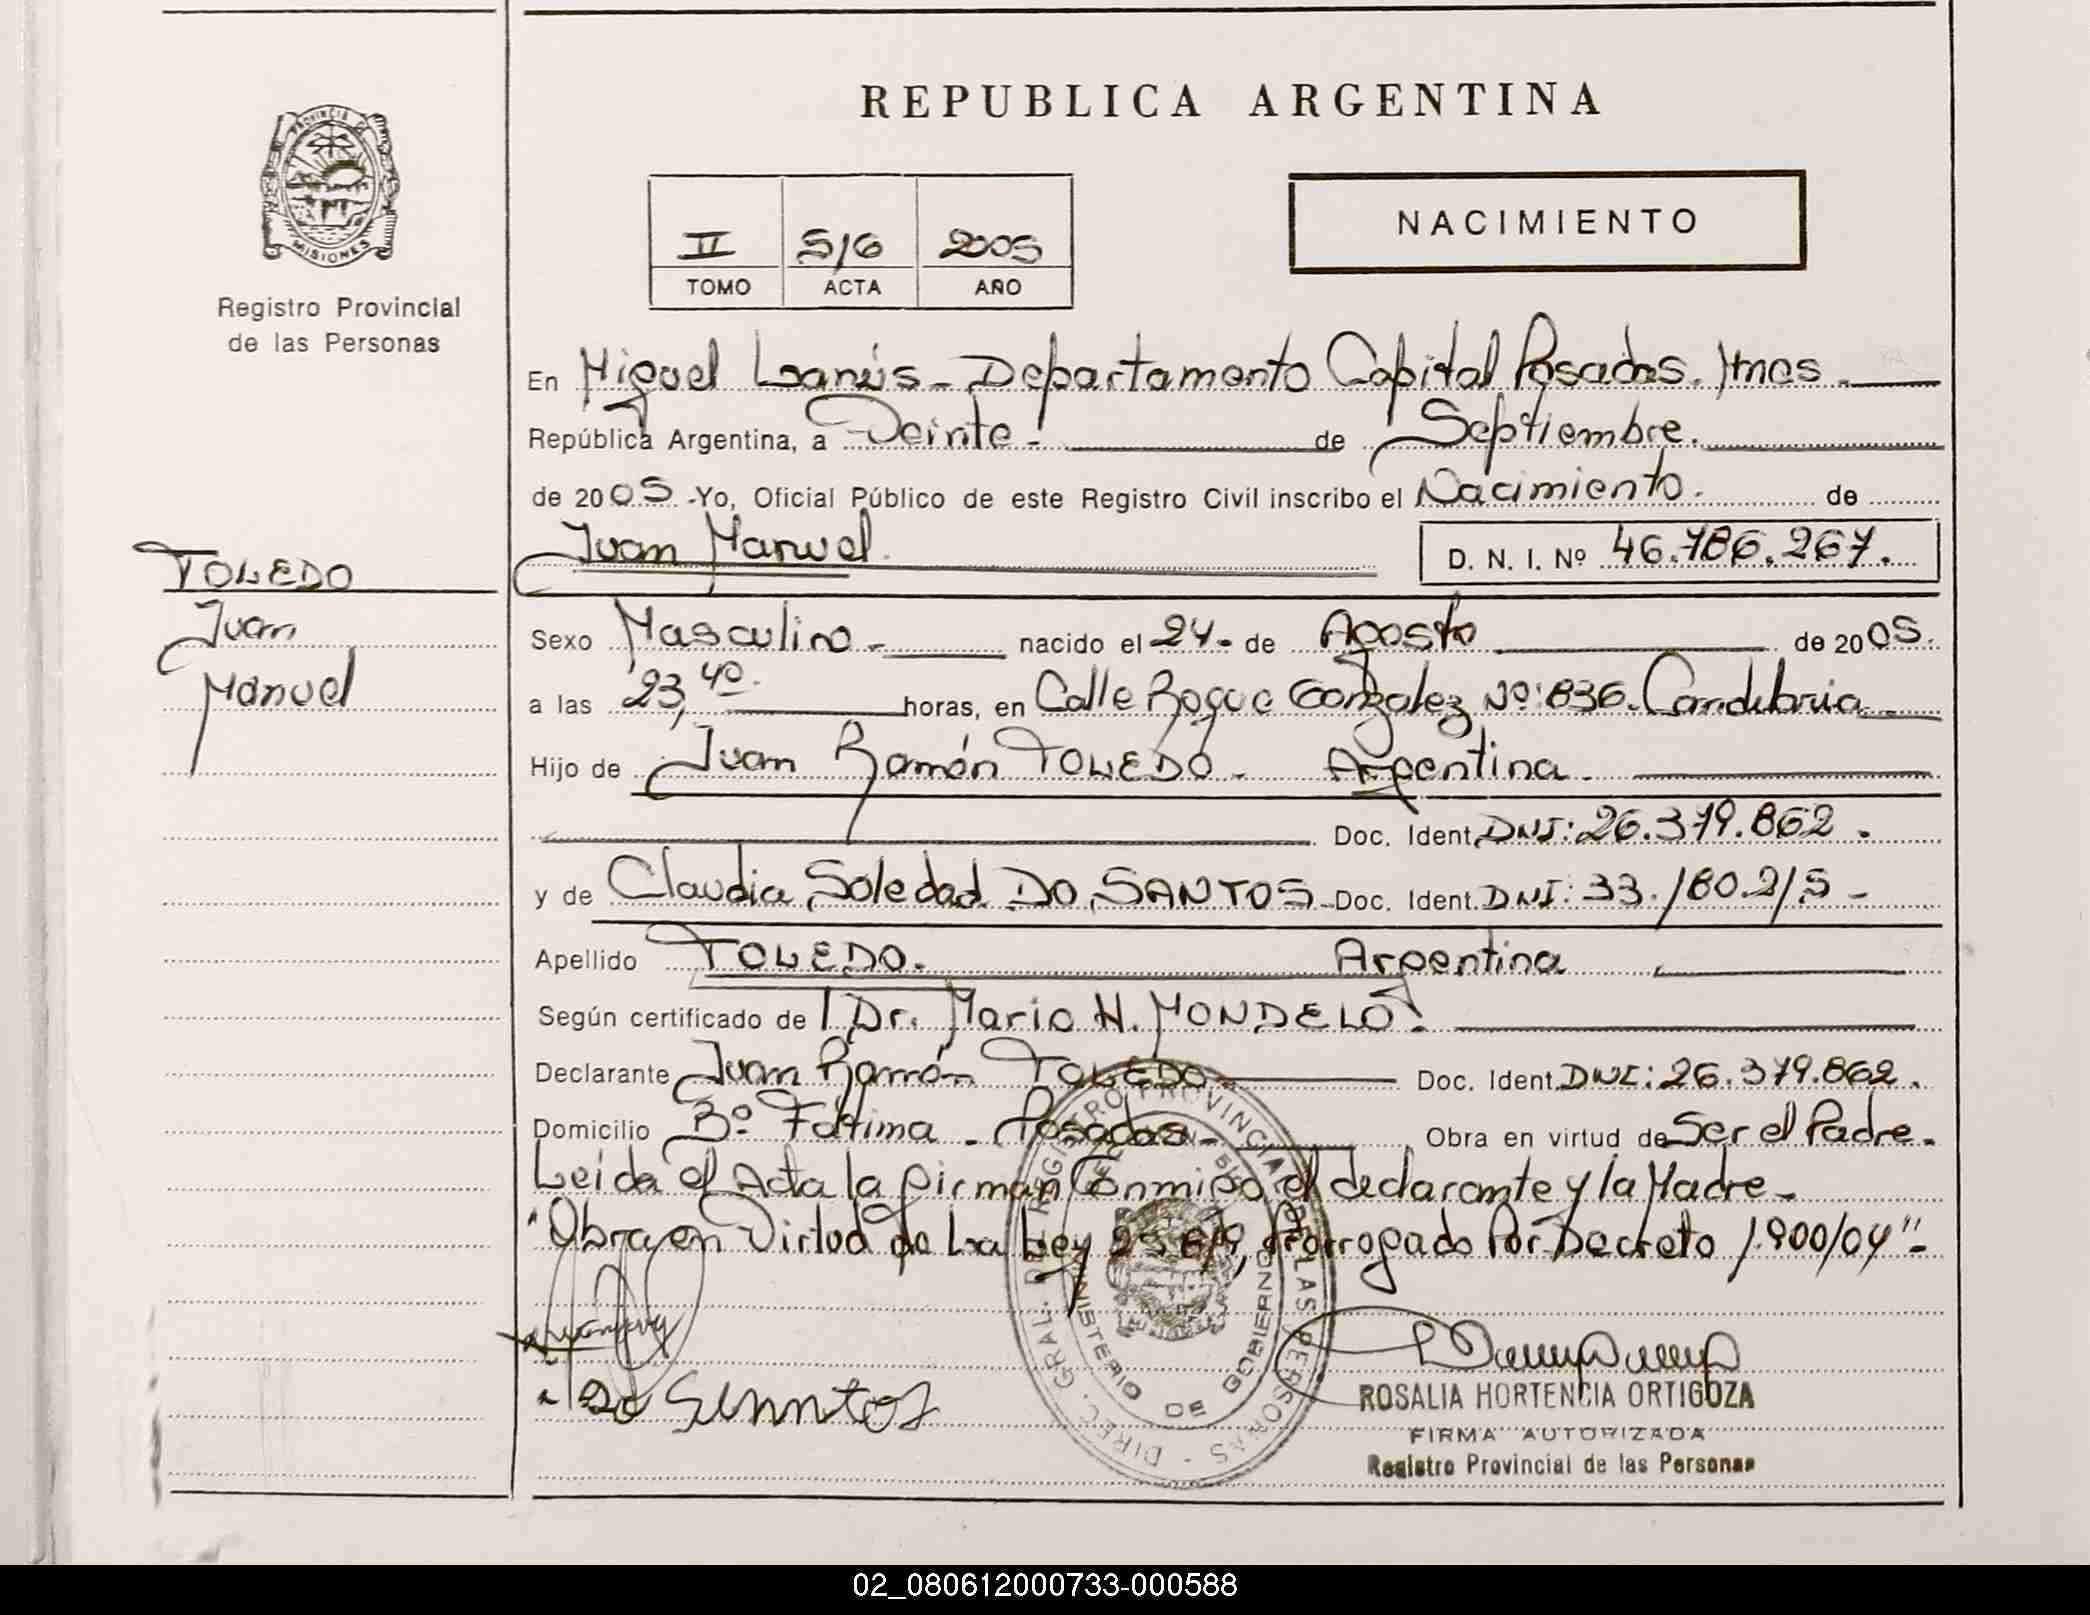 REPUBLICA ARGENTINA
PROVINCIA DE MISIONES
Registro Provincial
de las Personas
NACIMIENTO
II 516 2005
TOMO ACTA AÑO
En Miguel Lanús - Departamento Capital Posadas. Mnes.
República Argentina, a Veinte. de Septiembre.
de 2005. -Yo, Oficial Público de este Registro Civil inscribo el Nacimiento. de
Juan Manuel. D. N. I. Nº 46.786.267.
TOLEDO
Juan
Manuel
Sexo Masculino - nacido el 24 - de Agosto de 2005.
a las 23,40. horas, en Calle Roque Gonzalez Nº: 836. Candelaria -
Hijo de Juan Ramón TOLEDO - Argentina.
Doc. Ident. DNI: 26.379.862.
y de Claudia Soledad DO SANTOS - Doc. Ident. DNI: 33.180.215 -
Apellido TOLEDO. Argentina
Según certificado de l Dr. Mario H. MONDELO.
Declarante Juan Ramón TOLEDO - Doc. Ident. DNI: 26.379.862.
Domicilio Bº Fátima - Posadas - Obra en virtud de Ser el Padre.
Leida el Acta la firman Conmigo el declarante y la Madre -
"Obra en Virtud de La Ley prorrogado Por Decreto 1.900/04" -
DIREC. GRAL. DEL REGISTRO PROVINCIAL DE LAS PERSONAS -
MINISTERIO DE GOBIERNO
Do Santos
ROSALIA HORTENCIA ORTIGOZA
FIRMA AUTORIZADA
Registro Provincial de las Personas
02_080612000733-000588